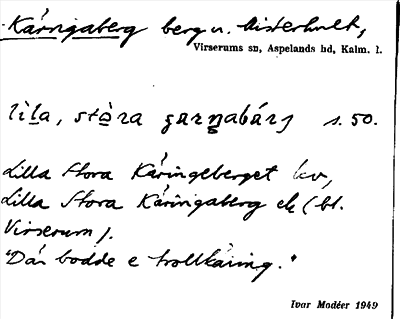 Käringaberg berg u. Aisterhult,
Virserums sn, Aspelands hd, Kalm. l.
lìl̲a, stò̲ra ʂarŋabárj s. 50.
Lilla Stora Käringeberget kv,
Lilla Stora Käringaberg ek (bl.
Virserum).
"Där bodde e trollkäring."
Ivar Modéer 1949